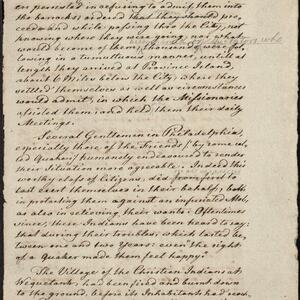 on persisted in refusing to admit them into
the barracks ordered that they should pro-
ceed and while passing thro' the City, not
knowing where they were going, nor what
would become of them, thousands were fol-
lowing in a tumultuous manner, until at
length they arrived at Province Island,
about 6 Miles below the City, where they
settled themselves as well as circumstances
would admit, in which the Missionaries
assisted them, and held them their daily
Meetings.
Several Gentlemen in Philadelphia,
especially those of the Friends (by some cal-
led Quakers) humanely endeavoured to render
their Situation more agreeable. Indeed this
worthy class of Citizens, did from first to
last exert themselves in their behalf, both
in protecting them against an infuriated Mob,
as also in relieving their wants. Oftentimes
since, these Indians have been heard to say;
that during their troubles, which lasted be-
tween one and two Years; even the sight
of a Quaker made them feel happy.
The Village of the Christian Indians at
Wequetank, had been fired and burnt down
to the ground, before its Inhabitants had reac